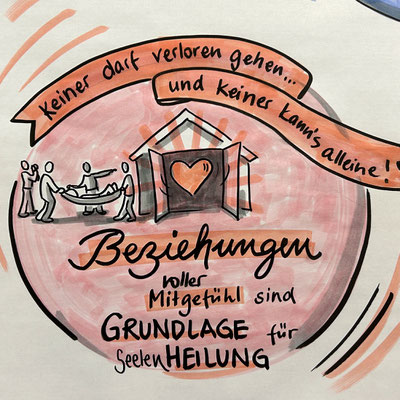 Keiner darf verloren gehen...
und keiner kann's alleine!
Beziehungen
voller
Mitgefühl sind
GRUNDLAGE für
SeelenHEILUNG